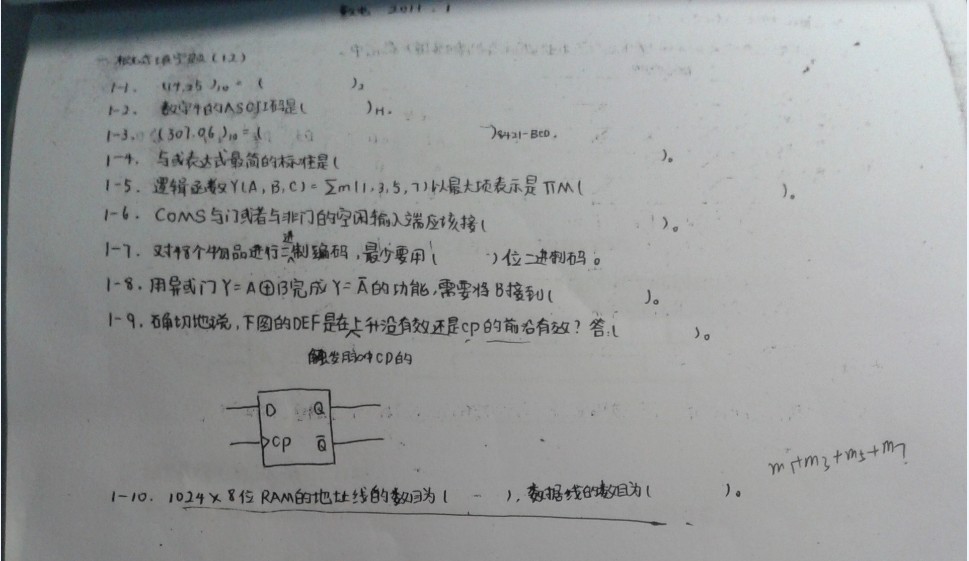 数电 2011.1
一、概念填空题(12)
1-1. (47.25)₁₀ = ( )₂
1-2. 数字9的ASCII码是( )H.
1-3. (307.06)₁₀ = ( )8421-BCD.
1-4. 与或表达式最简的标准是( )。
1-5. 逻辑函数Y(A,B,C)=∑m(1,3,5,7)以最大项表示是∏M( )。
1-6. COMS与门或者与非门的空闲输入端应该接( )。
1-7. 对48个物品进行二进制编码,最少要用( )位二进制码。
1-8. 用异或门Y=A⊕B完成Y=Ā的功能,需要将B接到( )。
1-9. 确切地说,下图的DEF是在上升沿有效还是CP的前沿有效?答:( )。
触发脉冲CP的
D Q
CP Q̄
m₁+m₃+m₅+m₇
1-10. 1024×8位RAM的地址线的数目为( - ),数据线的数目为( )。